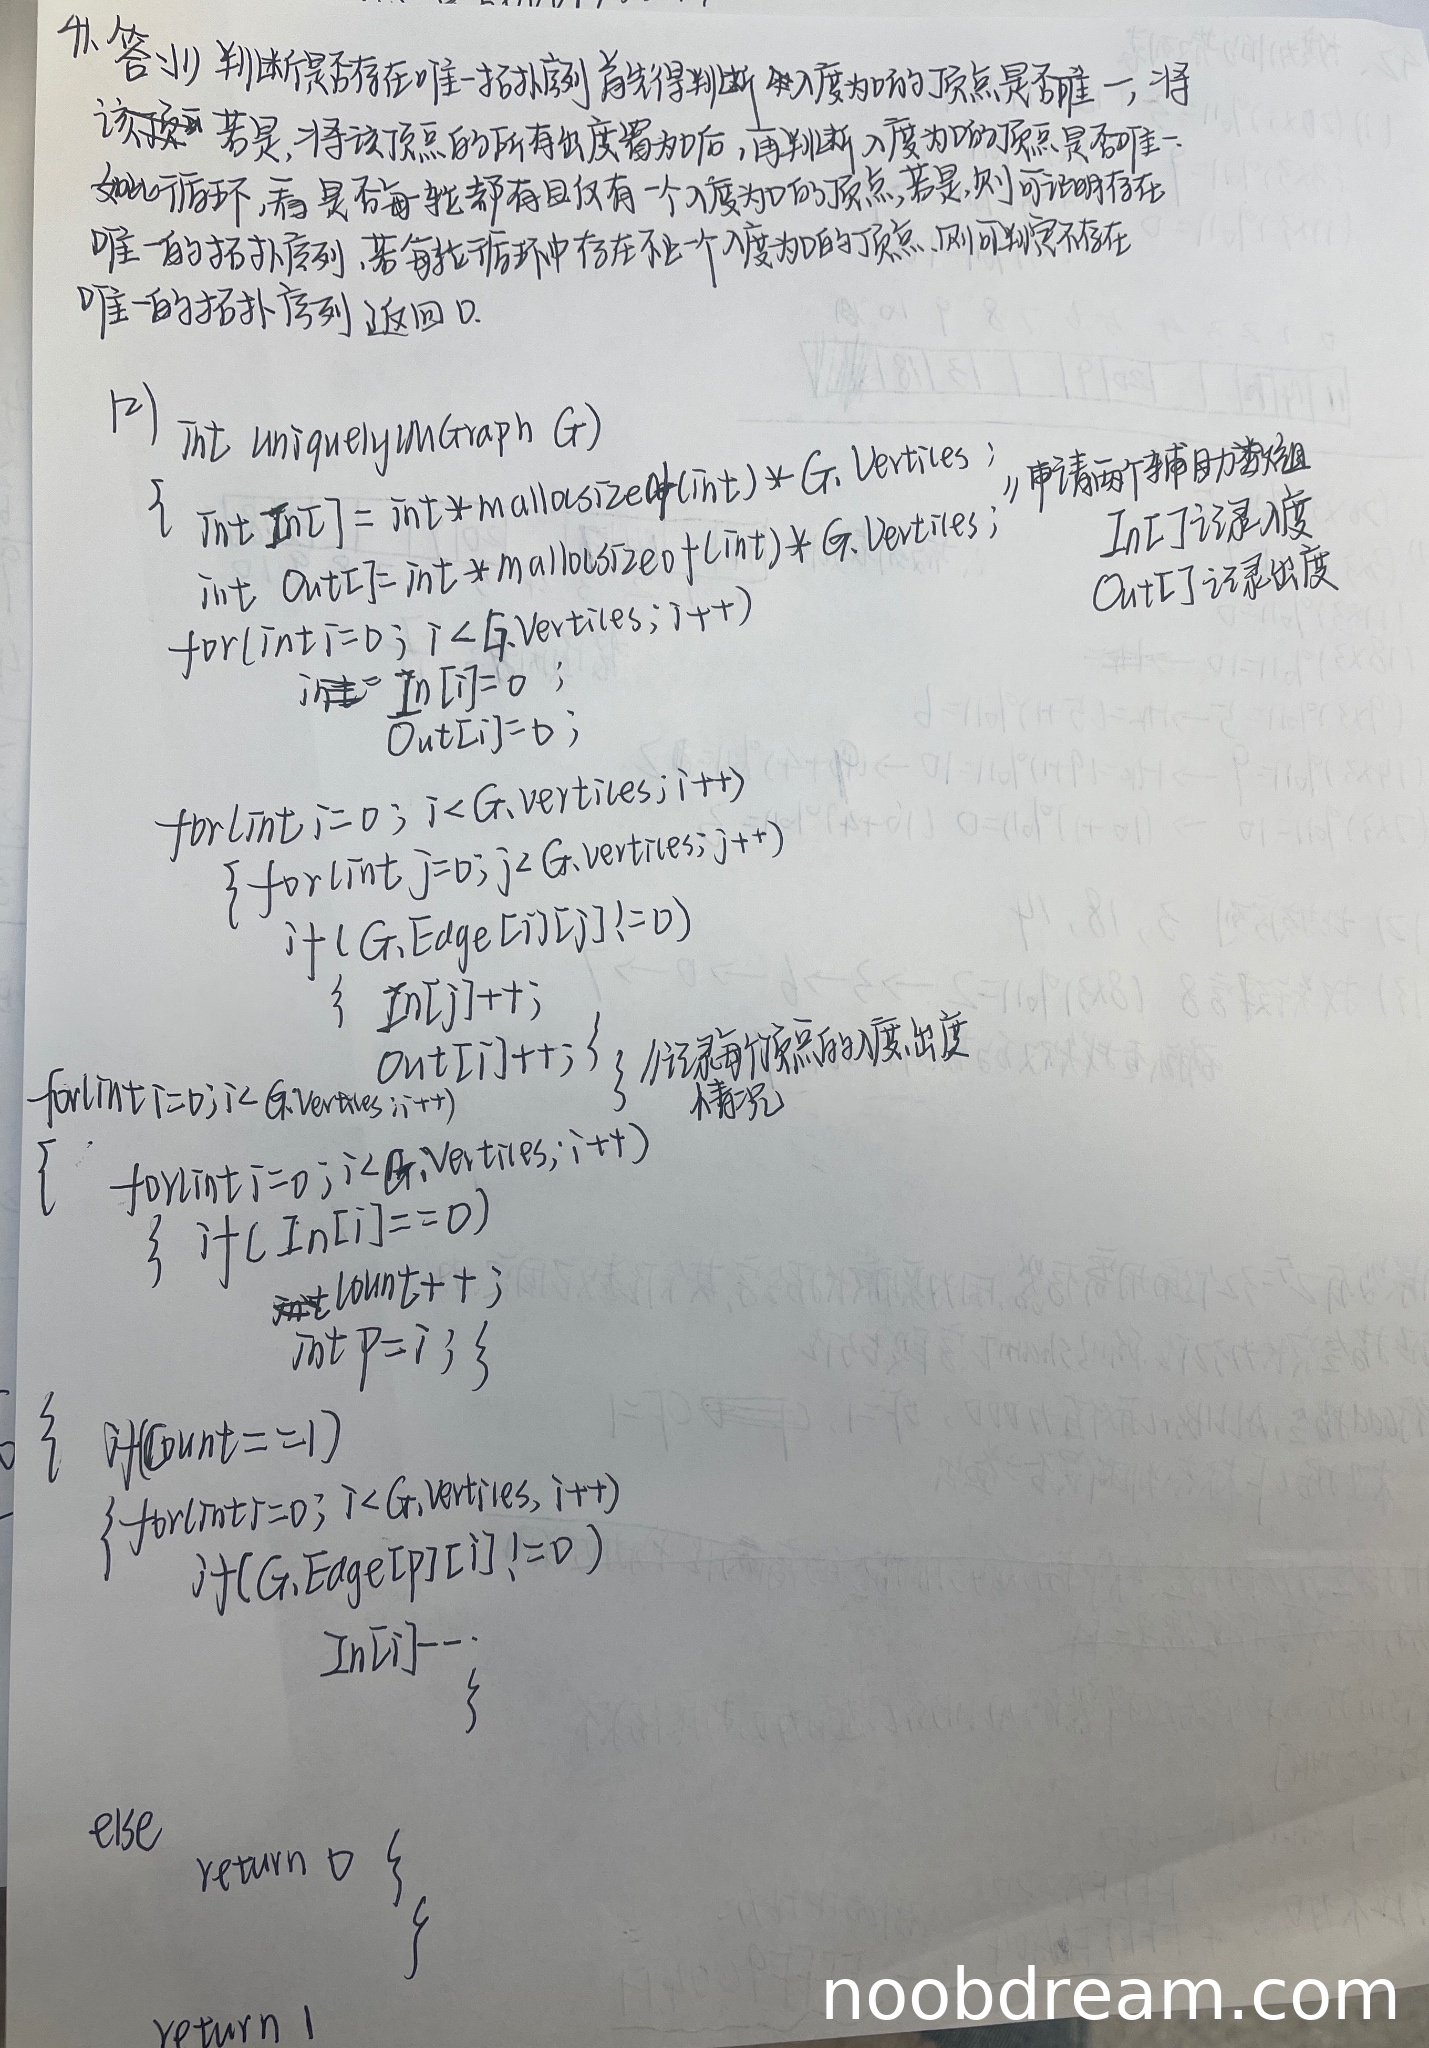 41. 答:(1) 判断是否存在唯一拓扑序列 首先得判断 入度为0的顶点是否唯一, 将
该顶 若是, 将该顶点的所有出度置为0后, 再判断入度为0的顶点是否唯一.
如此循环, 看是否每轮都有且仅有一个入度为0的顶点, 若是, 则可证明存在
唯一的拓扑序列, 若每轮循环中存在不止一个入度为0的顶点, 则可判定不存在
唯一的拓扑序列 返回0.
(2) int uniquely(MGraph G)
{ int In[] = int*mallocsizeof(int)*G.Vertices; //申请两个辅助数组
In[]记录入度
int Out[]=int*mallocsizeof(int)*G.Vertices;
Out[]记录出度
for(int i=0; i<G.Vertices; i++)
In[i]=0;
Out[i]=0;
for(int i=0; i<G.vertices; i++)
{ for(int j=0; j<G.vertices; j++)
if(G.Edge[i][j]!=0)
{ In[j]++;
Out[i]++; } } //记录每个顶点的入度、出度
情况
for(int i=0; i<G.Vertices; i++)
{ for(int i=0; i<G.Vertices; i++)
{ if(In[i]==0)
count++;
int p=i; }
{ if(Count==1)
{ for(int i=0; i<G.Vertices, i++)
if(G.Edge[p][i]!=0)
In[i]--;
}
else
return 0 }
}
return 1
noobdream.com